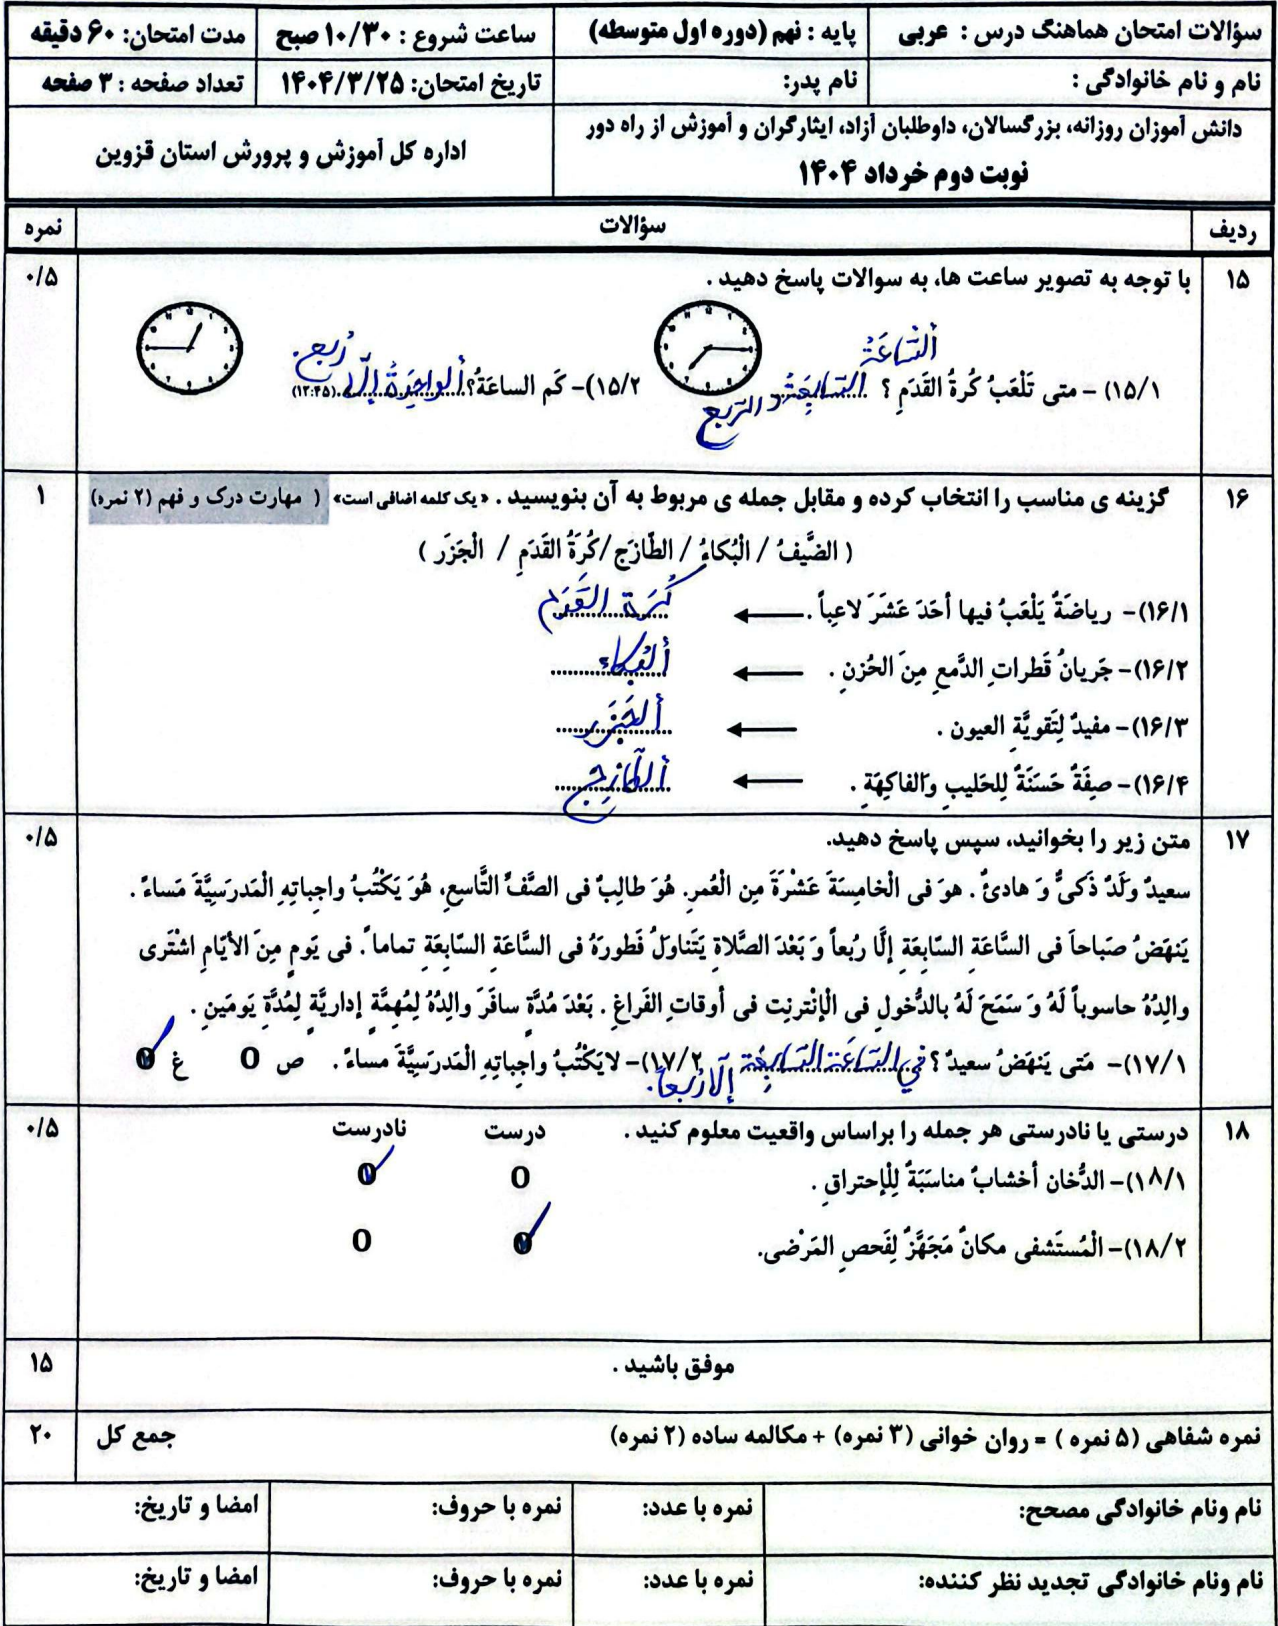 سؤالات امتحان هماهنگ درس : عربی
پایه : نهم (دوره اول متوسطه)
ساعت شروع : ۱۰/۳۰ صبح
مدت امتحان: ۶۰ دقیقه
نام و نام خانوادگی :
نام پدر:
تاریخ امتحان: ۱۴۰۴/۳/۲۵
تعداد صفحه : ۳ صفحه
دانش آموزان روزانه، بزرگسالان، داوطلبان آزاد، ایثارگران و آموزش از راه دور
نوبت دوم خرداد ۱۴۰۴
اداره کل آموزش و پرورش استان قزوین
ردیف سؤالات نمره
۱۵ با توجه به تصویر ساعت ها، به سوالات پاسخ دهید . ۰/۵
۱۵/۱)- متی تَلْعَبُ کُرةُ القَدَمِ ؟ ألسّاعَةُ السّابِعَةُ و الرّبع
۱۵/۲)- کَم الساعَةُ؟ ألواحِدَةُ إلّا رُبع. (۱۲:۴۵)
۱۶ گزینه ی مناسب را انتخاب کرده و مقابل جمله ی مربوط به آن بنویسید . «یک کلمه اضافی است» ( مهارت درک و فهم (۲ نمره) ۱
( الضَّیفُ / الْبُکاءُ / الطّازَج /کُرَةُ القَدَمِ / الْجَزَر )
۱۶/۱)- ریاضَةٌ یَلْعَبُ فیها أحَدَ عَشَرَ لاعِباً . کُرَة القَدَم
۱۶/۲)- جَریانُ قَطراتِ الدَّمعِ مِنَ الحُزنِ . ألبُکاء
۱۶/۳)- مفیدٌ لِتَقویَّةِ العیون . ألجَزَر
۱۶/۴)- صِفَةٌ حَسَنَةٌ لِلحَلیبِ وَالفاکِهَةِ . ألطّازِج
۱۷ متن زیر را بخوانید، سپس پاسخ دهید. ۰/۵
سعیدٌ وَلَدٌ ذَکیٌّ وَ هادئٌ . هوَ فی الْخامِسَةَ عَشْرَةَ مِن الْعُمرِ. هُوَ طالِبٌ فی الصَّفِّ التَّاسعِ، هُوَ یَکْتُبُ واجِباتِهِ الْمَدرَسِیَّةَ مَساءً .
یَنهَضُ صبَاحاً فی السَّاعَةِ السّابِعَةِ إلَّا رُبعاً وَ بَعْدَ الصَّلاةِ یَتَناوَلُ فَطورَهُ فی السَّاعَةِ السّابِعَةِ تماماً. فی یَومٍ مِنَ الأیّامِ اشْتَری
والِدُهُ حاسوباً لَهُ وَ سَمَحَ لَهُ بالدُّخولِ فی الْإنْترنِت فی أوقاتِ الفَراغِ . بَعْدَ مُدَّةٍ سافَرَ والِدُهُ لِمُهِمَّةٍ إداریَّةٍ لِمُدَّةِ یَومَینِ .
۱۷/۱)- مَتی یَنهَضُ سعیدٌ ؟ في السّاعَة السّابِعَة إلّا رُبعاً.
۱۷/۲)- لایَکْتُبُ واجِباتِهِ الْمَدرَسِیَّةَ مساءً . ص غ
۱۸ درستی یا نادرستی هر جمله را براساس واقعیت معلوم کنید . درست نادرست ۰/۵
۱۸/۱)- الدُّخان أخشابٌ مناسَبَةٌ لِلْإحتراقِ .
۱۸/۲)- الْمُستَشفی مکانٌ مَجَهَّزٌ لِفَحصِ المَرْضی.
موفق باشید . ۱۵
نمره شفاهی (۵ نمره ) = روان خوانی (۳ نمره) + مکالمه ساده (۲ نمره) جمع کل ۲۰
نام ونام خانوادگی مصحح: نمره با عدد: نمره با حروف: امضا و تاریخ:
نام ونام خانوادگی تجدید نظر کننده: نمره با عدد: نمره با حروف: امضا و تاریخ: